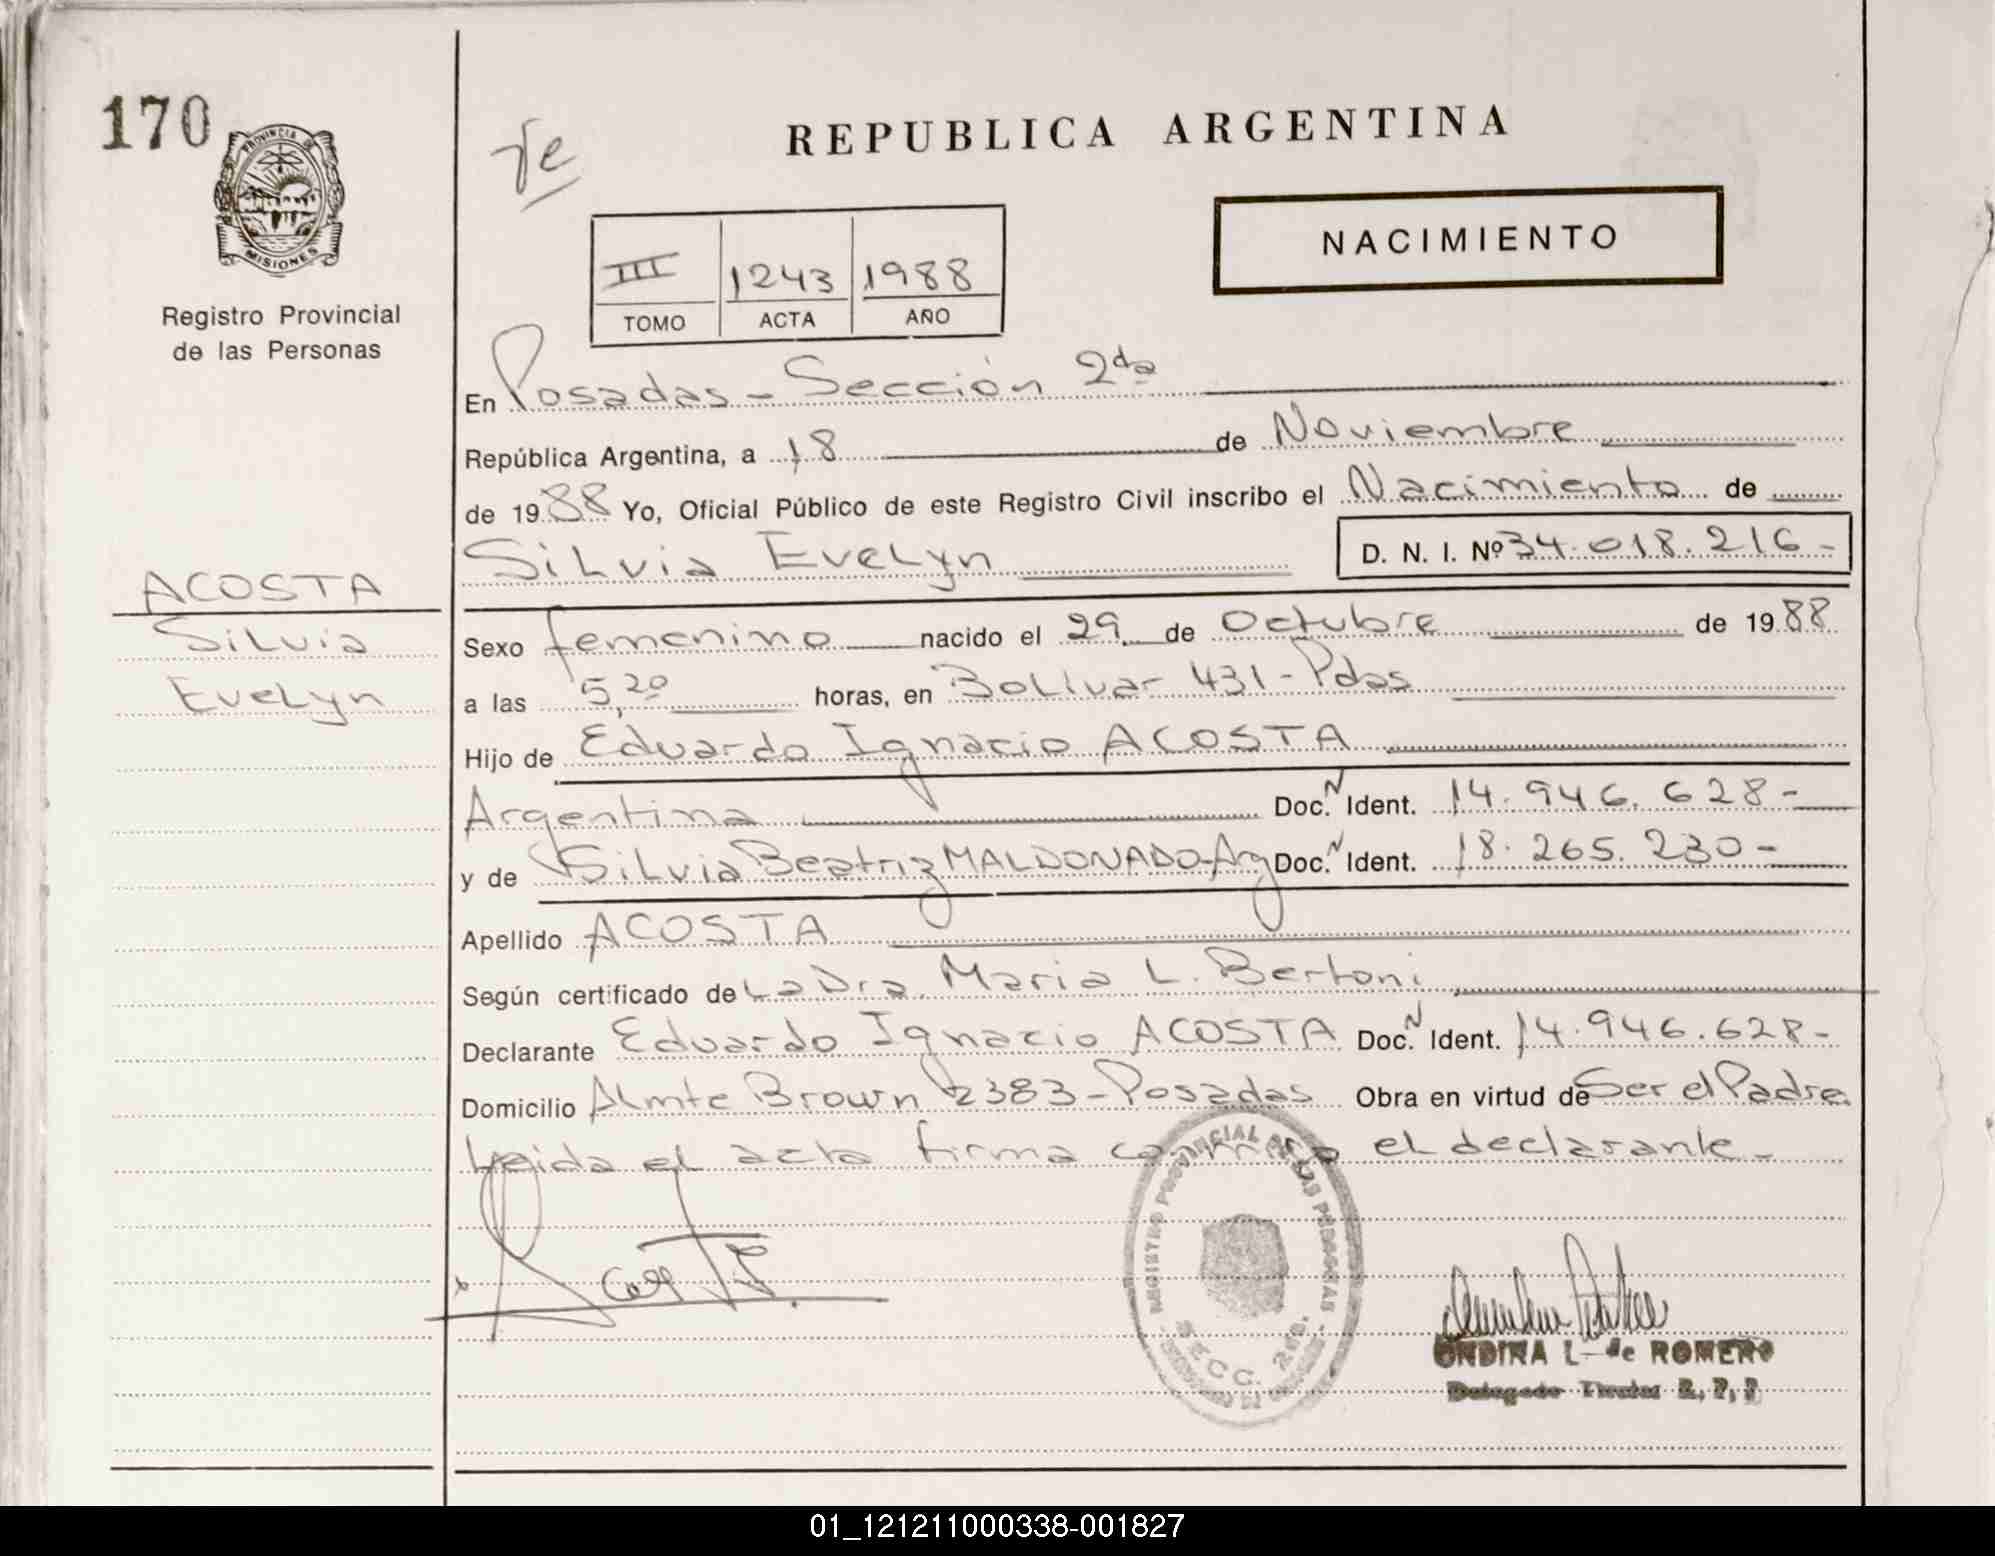 170
PROVINCIA DE
MISIONES
Registro Provincial
de las Personas
ACOSTA
Silvia
Evelyn
REPUBLICA ARGENTINA
NACIMIENTO
III 1243 1988
TOMO ACTA AÑO
En Posadas - Sección 2da
República Argentina, a 18 de Noviembre
de 1988 Yo, Oficial Público de este Registro Civil inscribo el Nacimiento de
Silvia Evelyn D. N. I. Nº 34.018.216-
Sexo femenino nacido el 29 de Octubre de 1988
a las 5,20 horas, en Bolívar 431 - Pdas
Hijo de Eduardo Ignacio ACOSTA
Argentina Doc. N Ident. 14.946.628-
y de Silvia Beatriz MALDONADO-Arg Doc. N Ident. 18.265.230-
Apellido ACOSTA
Según certificado de La Dra. Maria L. Bertoni
Declarante Eduardo Ignacio ACOSTA Doc. N Ident. 14.946.628-
Domicilio Almte Brown 2383 - Posadas Obra en virtud de Ser el Padre.
Leida el acta firma conmigo el declarante-
REGISTRO PROVINCIAL DE LAS PERSONAS
SECC. 2da.
ONDINA L. de ROMERO
Delegado Titular R. P. P
01_121211000338-001827